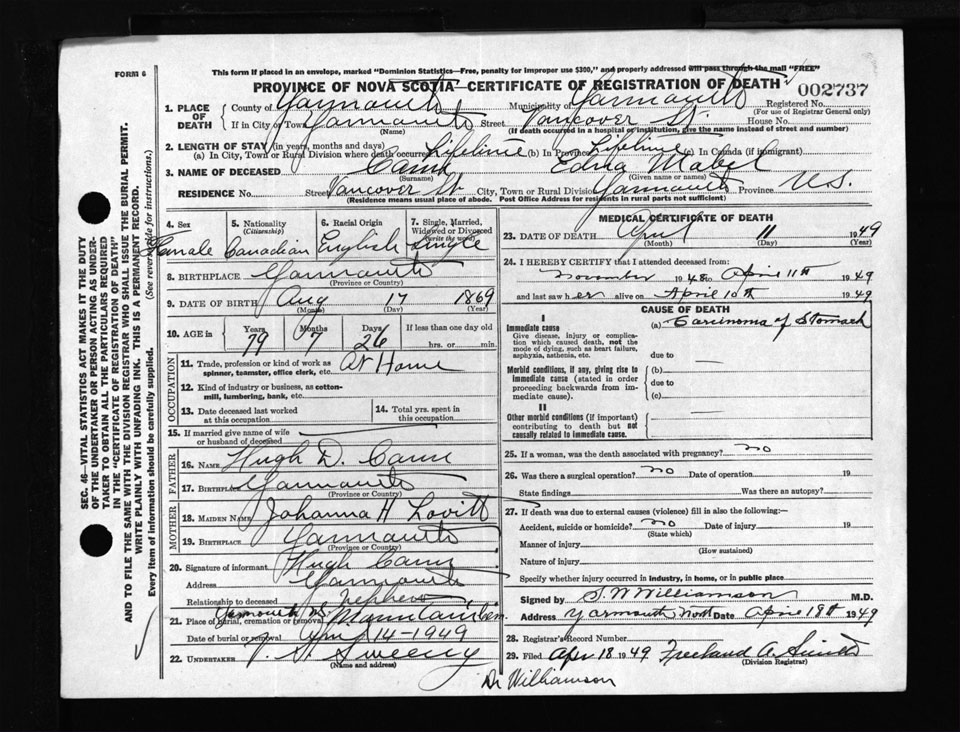 FORM 6
This form if placed in an envelope, marked "Dominion Statistics—Free, penalty for improper use $300," and properly addressed will pass through the mail "FREE"
PROVINCE OF NOVA SCOTIA—CERTIFICATE OF REGISTRATION OF DEATH
002737
1. PLACE OF DEATH
County of Yarmouth Municipality of Yarmouth Registered No.
(For use of Registrar General only)
If in City or Town Yarmouth Street Vancover St. House No.
(Name) (If death occurred in a hospital or institution, give the name instead of street and number)
2. LENGTH OF STAY (in years, months and days)
(a) In City, Town or Rural Division where death occurred Lifetime (b) In Province Lifetime (c) In Canada (if immigrant)
3. NAME OF DECEASED Cann Edna Mabel
(Surname) (Given name or names)
RESIDENCE No. Street Vancover St City, Town or Rural Division Yarmouth Province N.S.
Residence means usual place of abode. Post Office Address for residents in rural parts not sufficient)
4. Sex Female
5. Nationality (Citizenship) Canadian
6. Racial Origin English
7. Single, Married, Widowed or Divorced (Write the word) Single
8. BIRTHPLACE Yarmouth
(Province or Country)
9. DATE OF BIRTH Aug 17 1869
(Month) (Day) (Year)
10. AGE in Years 79 Months 7 Days 26 If less than one day old hrs. or min.
OCCUPATION
11. Trade, profession or kind of work as spinner, teamster, office clerk, etc. At Home
12. Kind of industry or business, as cotton-mill, lumbering, bank, etc.
13. Date deceased last worked at this occupation
14. Total yrs. spent in this occupation
15. If married give name of wife or husband of deceased
FATHER
16. Name Hugh D. Cann
17. Birthplace Yarmouth
(Province or Country)
MOTHER
18. Maiden Name Johanna H Lovitt
19. Birthplace Yarmouth
(Province or Country)
20. Signature of informant Hugh Cann
Address Yarmouth
Relationship to deceased Nephew
21. Place of burial, cremation or removal Yarmouth NS Mountain Cem.
Date of burial or removal April 14-1949
22. UNDERTAKER Sweeny
(Name and address)
MEDICAL CERTIFICATE OF DEATH
23. DATE OF DEATH April 11 1949
(Month) (Day) (Year)
24. I HEREBY CERTIFY that I attended deceased from:
November 1948 to April 11th 1949
and last saw her alive on April 10th 1949
CAUSE OF DEATH
I
Immediate cause (a) Carcinoma of Stomach
Give disease, injury or complication which caused death, not the mode of dying, such as heart failure, asphyxia, asthenia, etc.
due to
Morbid conditions, if any, giving rise to immediate cause (stated in order proceeding backwards from immediate cause).
(b)
due to
(c)
II
Other morbid conditions (if important) contributing to death but not causally related to immediate cause.
25. If a woman, was the death associated with pregnancy? no
26. Was there a surgical operation? no Date of operation 19
State findings Was there an autopsy?
27. If death was due to external causes (violence) fill in also the following:—
Accident, suicide or homicide? no Date of injury 19
(State which)
Manner of injury
(How sustained)
Nature of injury
Specify whether injury occurred in industry, in home, or in public place
Signed by S. W Williamson M.D.
Address Yarmouth North Date April 18th 1949
28. Registrar's Record Number
29. Filed Apr 18 1949 Freeland A. Smith
(Division Registrar)
Dr Williamson
SEC. 46—VITAL STATISTICS ACT MAKES IT THE DUTY
OF THE UNDERTAKER OR PERSON ACTING AS UNDER-
TAKER TO OBTAIN ALL THE PARTICULARS REQUIRED
IN THE "CERTIFICATE OF REGISTRATION OF DEATH"
AND TO FILE THE SAME WITH THE DIVISION REGISTRAR WHO SHALL ISSUE THE BURIAL PERMIT.
WRITE PLAINLY WITH UNFADING INK. THIS IS A PERMANENT RECORD.
Every item of information should be carefully supplied. (See reverse side for instructions.)